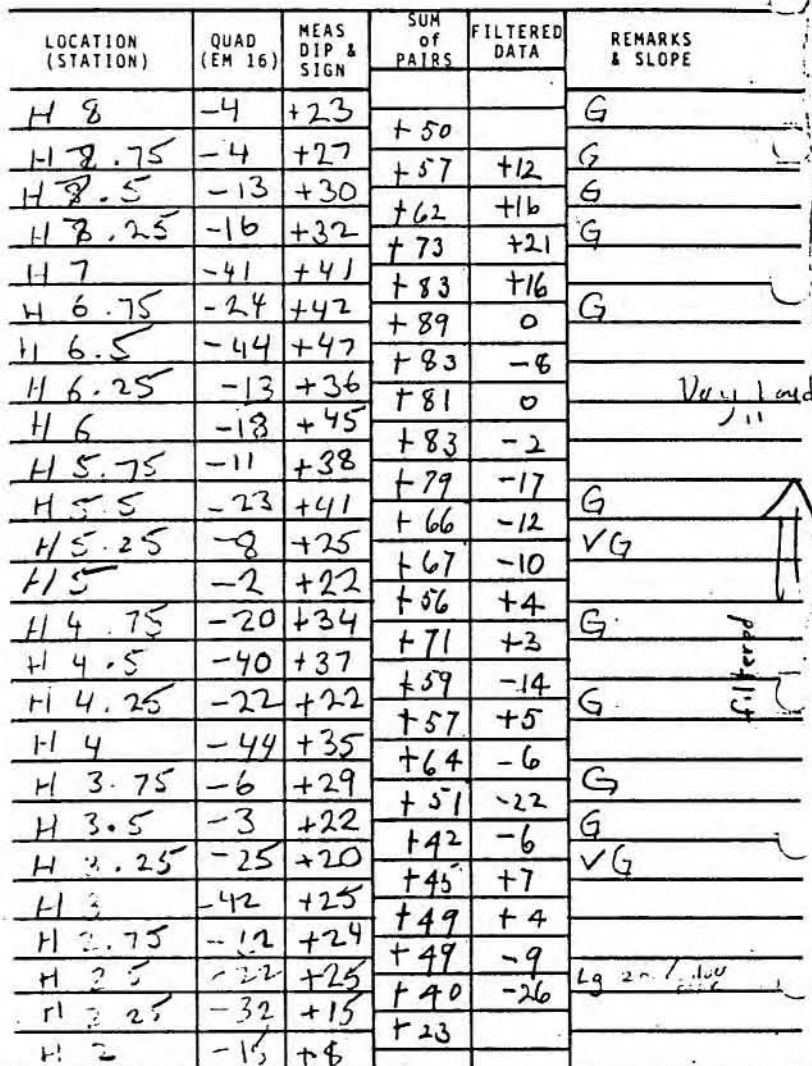 LOCATION (STATION) QUAD (EM 16) MEAS DIP & SIGN SUM of PAIRS FILTERED DATA REMARKS & SLOPE
H 8 -4 +23 G
+50
H 8.75 -4 +27 G
+57 +12
H 8.5 -13 +30 G
+62 +16
H 8.25 -16 +32 G
+73 +21
H 7 -41 +41
+83 +16
H 6.75 -24 +42 G
+89 0
H 6.5 -44 +47
+83 -8
H 6.25 -13 +36
+81 0
H 6 -18 +45
+83 -2
H 5.75 -11 +38
+79 -17
H 5.5 -23 +41 G
+66 -12
H 5.25 -8 +25 VG
+67 -10
H 5 -2 +22
+56 +4
H 4.75 -20 +34 G
+71 +3
H 4.5 -40 +37
+59 -14
H 4.25 -22 +22 G
+57 +5
H 4 -44 +35
+64 -6
H 3.75 -6 +29 G
+51 -22
H 3.5 -3 +22 G
+42 -6
H 3.25 -25 +20 VG
+45 +7
H 3 -42 +25
+49 +4
H 2.75 -12 +24
+49 -9
H 2 5 -22 +25 Lg
+40 -26
H 2 25 -32 +15
+23
H 2 -15 +8
filtered